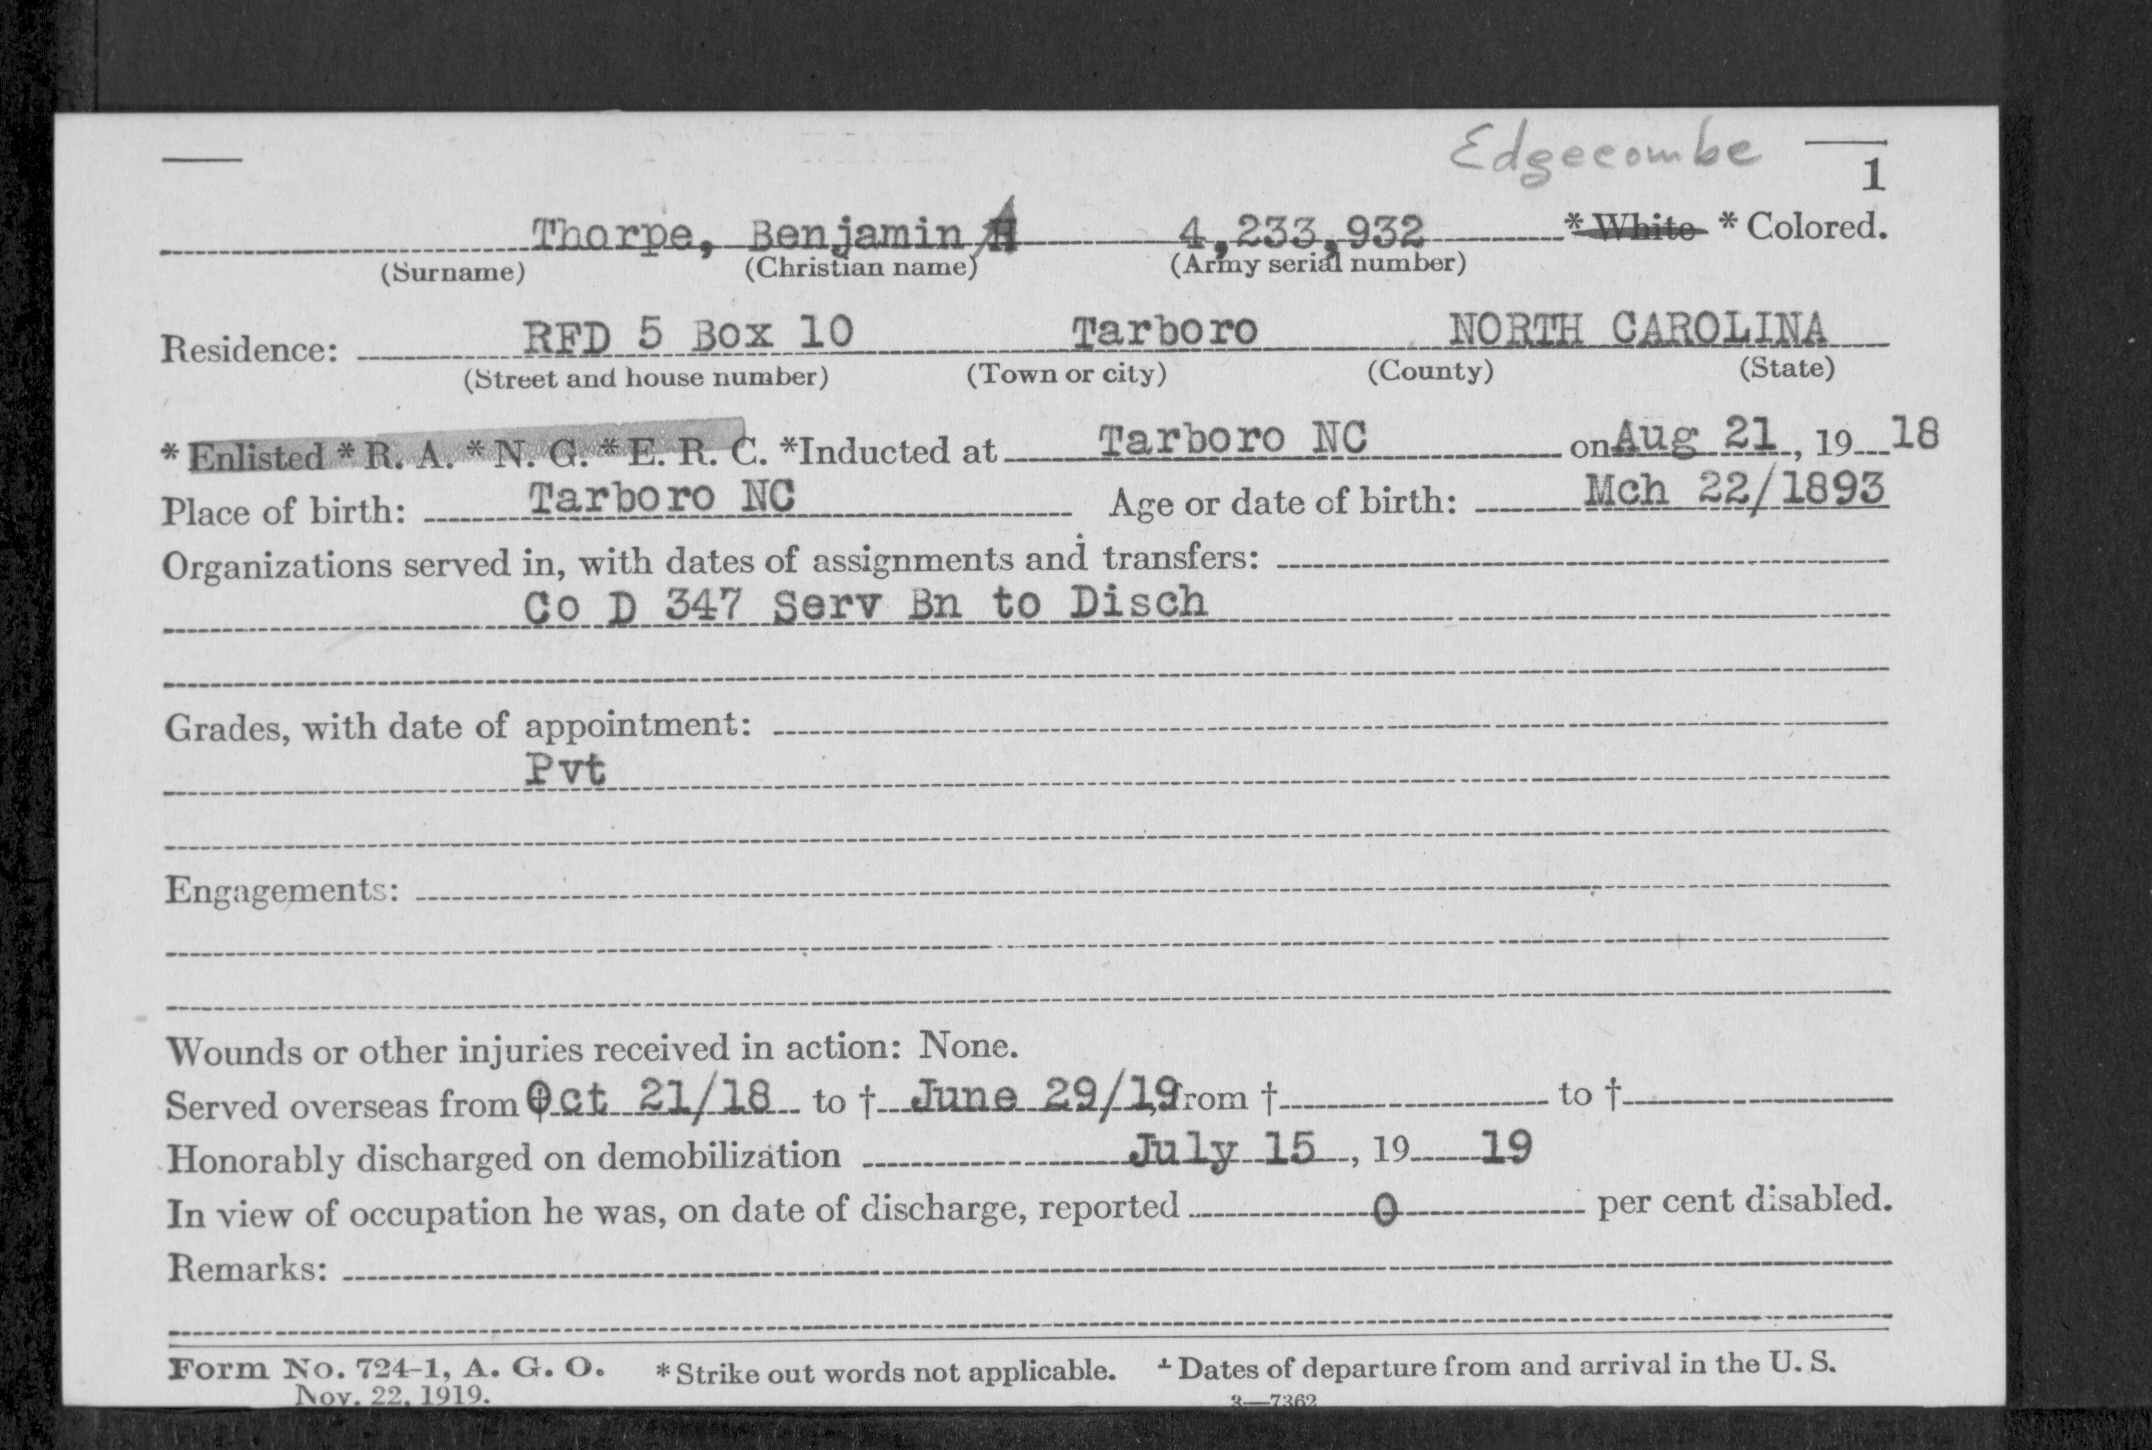 Edgecombe
1
Thorpe, Benjamin 4,233,932 * White * Colored.
(Surname) (Christian name) (Army serial number)
Residence: RFD 5 Box 10 Tarboro NORTH CAROLINA
(Street and house number) (Town or city) (County) (State)
* Enlisted * R. A. * N. G. * E. R. C. *Inducted at Tarboro NC on Aug 21, 19 18
Place of birth: Tarboro NC Age or date of birth: Mch 22/1893
Organizations served in, with dates of assignments and transfers:
Co D 347 Serv Bn to Disch
Grades, with date of appointment:
Pvt
Engagements:
Wounds or other injuries received in action: None.
Served overseas from Oct 21/18 to † June 29/19, from † to †
Honorably discharged on demobilization July 15, 19 19
In view of occupation he was, on date of discharge, reported 0 per cent disabled.
Remarks:
Form No. 724-1, A. G. O. * Strike out words not applicable. † Dates of departure from and arrival in the U. S.
Nov. 22, 1919. 3—7362